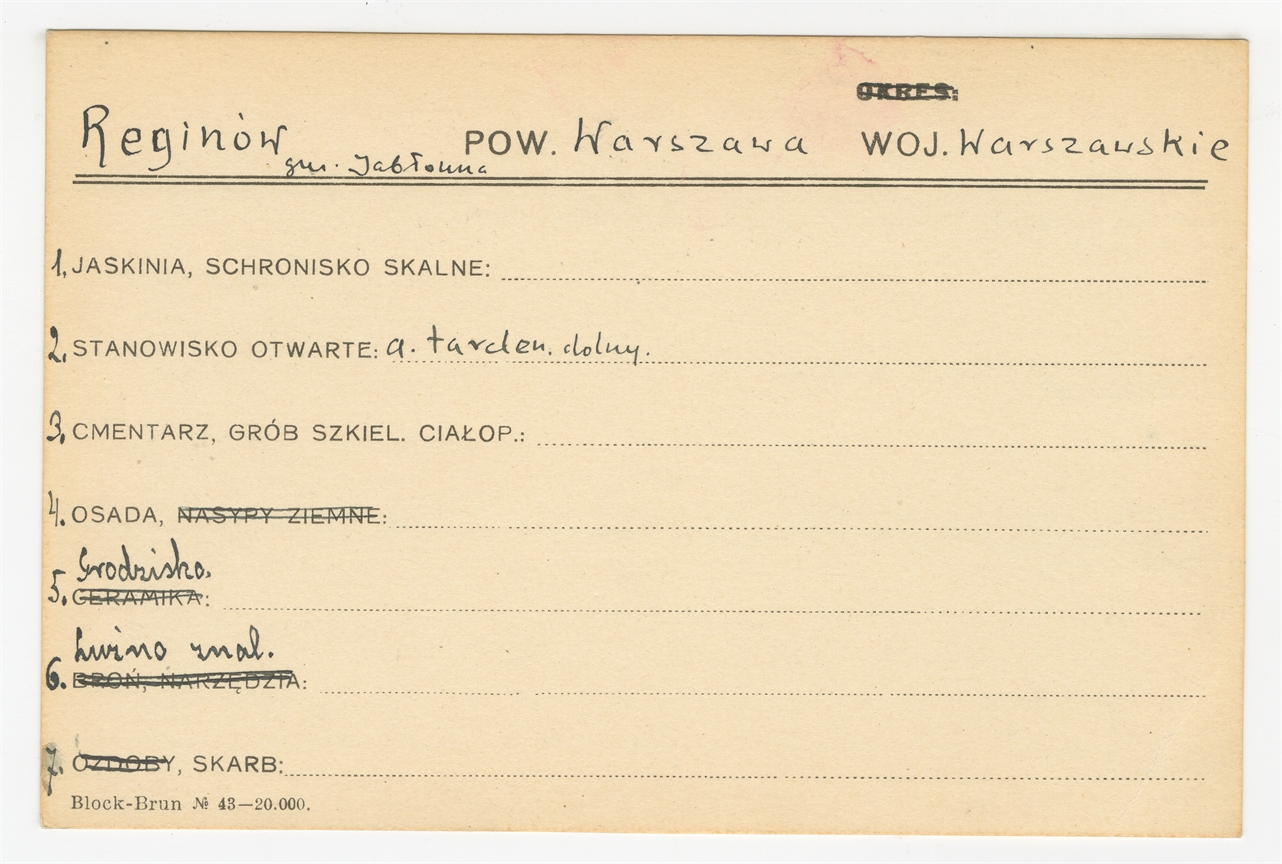 OKRES:
Reginów POW. Warszawa WOJ. Warszawskie
gm. Jabłonna
1. JASKINIA, SCHRONISKO SKALNE:
2. STANOWISKO OTWARTE: a. tarden. dolny.
3. CMENTARZ, GRÓB SZKIEL. CIAŁOP.:
4. OSADA, NASYPY ZIEMNE:
Grodzisko.
5. CERAMIKA:
Luźno znal.
6. BROŃ, NARZĘDZIA:
7. OZDOBY, SKARB:
Block-Brun № 43—20.000.